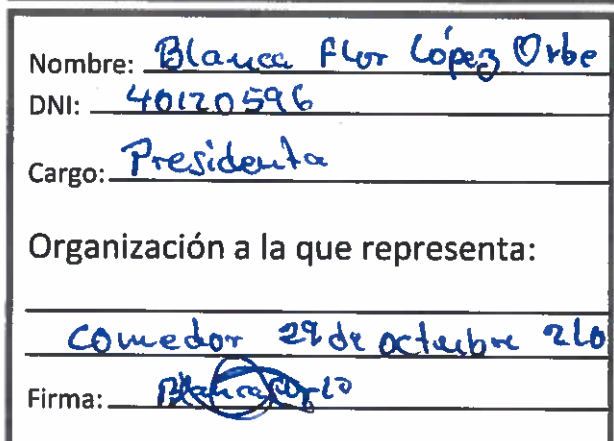 Nombre: Blanca Flor López Orbe
DNI: 40120596
Cargo: Presidenta
Organización a la que representa:
comedor 29 de octubre
Firma: